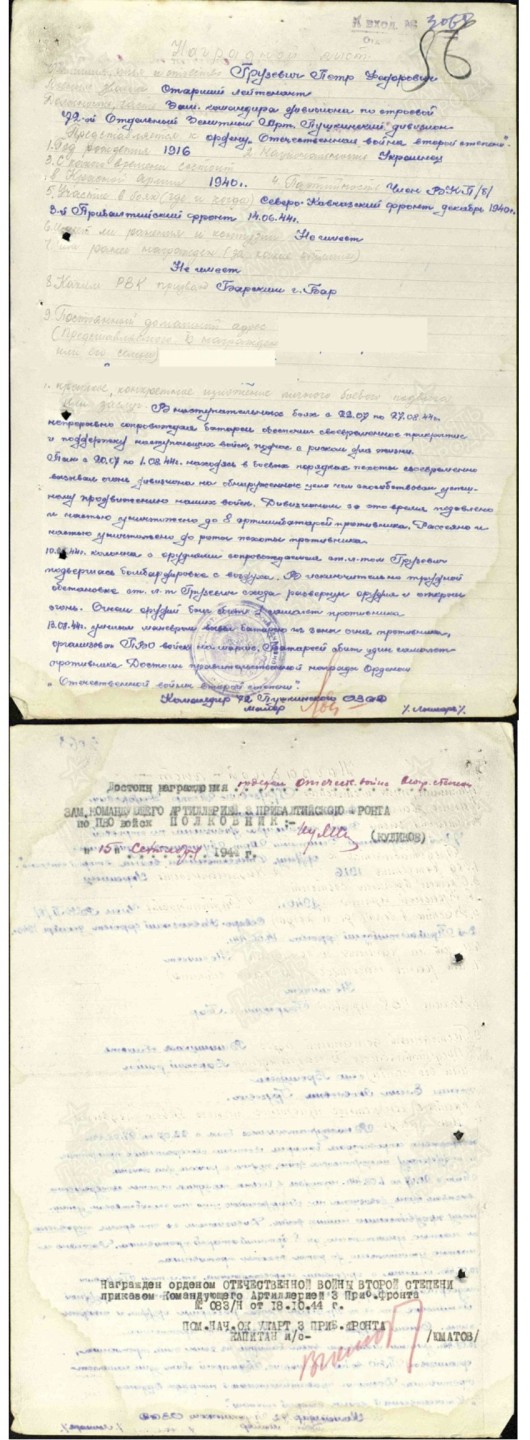 К вход. № 3068
56
Наградной лист
Грузевич Петр Федорович
Старший лейтенант
Зам. командира дивизиона по строевой
72-й Отдельный Зенитный Арт. Пушкинский дивизион
Представляется к ордену "Отечественная война второй степени".
1. Год рождения 1916 2. Национальность Украинец
3. С какого времени состоит
в Красной Армии 1940г. 4. Партийность Член ВКП/б/
5. Участие в боях (где и когда) Северо-Кавказский фронт декабрь 1940г.
3-й Прибалтийский фронт 14.06.44г.
6. Имеет ли ранения и контузии Не имеет
7. ранее награжден (за какие отличия)
Не имеет
8. Каким РВК призван Барским г. Бар
9. Постоянный домашний адрес
(Представляемого к награждению
или его семьи)
конкретное изложение личного боевого подвига
или заслуг
В наступательных боях с 22.07 по 27.08.44г.
непрерывно сопровождая батареи обеспечил своевременное прикрытие
и поддержку наступающих войск, подчас с риском для жизни.
Так с 20.07 по 1.08.44г. находясь в боевых порядках пехоты своевременно
вызывал огонь дивизиона на обнаруженные цели чем способствовал успеш-
ному продвижению наших войск. Дивизионом за это время подавлено
и частью уничтожено до 8 артминбатарей противника. Рассеяно и
частью уничтожено до роты пехоты противника.
10.08.44г. колонна с орудиями сопровождаемая ст. л-том Грузевич
подверглась бомбардировке с воздуха. В исключительно трудной
обстановке ст. л-т Грузевич сходу развернул орудия и открыл
огонь. Огнем орудий был сбит самолет противника
13.08.44г. умелым маневром вывел батарею из зоны огня противника,
организовал ПВО войск на марше. Батареей сбит один самолет
противника. Достоин правительственной награды Ордена
"Отечественной войны второй степени".
Командир 72 Пушкинского ОЗАД
майор
Достоин награждения орденом Отечеств. война втор. степени
ЗАМ. КОМАНДУЮЩЕГО АРТИЛЛЕРИЕЙ 3 ПРИБАЛТИЙСКОГО ФРОНТА
по ПВО войск ПОЛКОВНИК:-
(КУЛИКОВ)
"15" Сентября 1944 г.
Награжден орденом ОТЕЧЕСТВЕННОЙ ВОЙНЫ ВТОРОЙ СТЕПЕНИ
приказом Командующего Артиллерией 3 Приб.фронта
№ 083/Н от 18.10.44 г.
ПОМ.НАЧ.ОК УПАРТ 3 ПРИБ.ФРОНТА
КАПИТАН и/с-